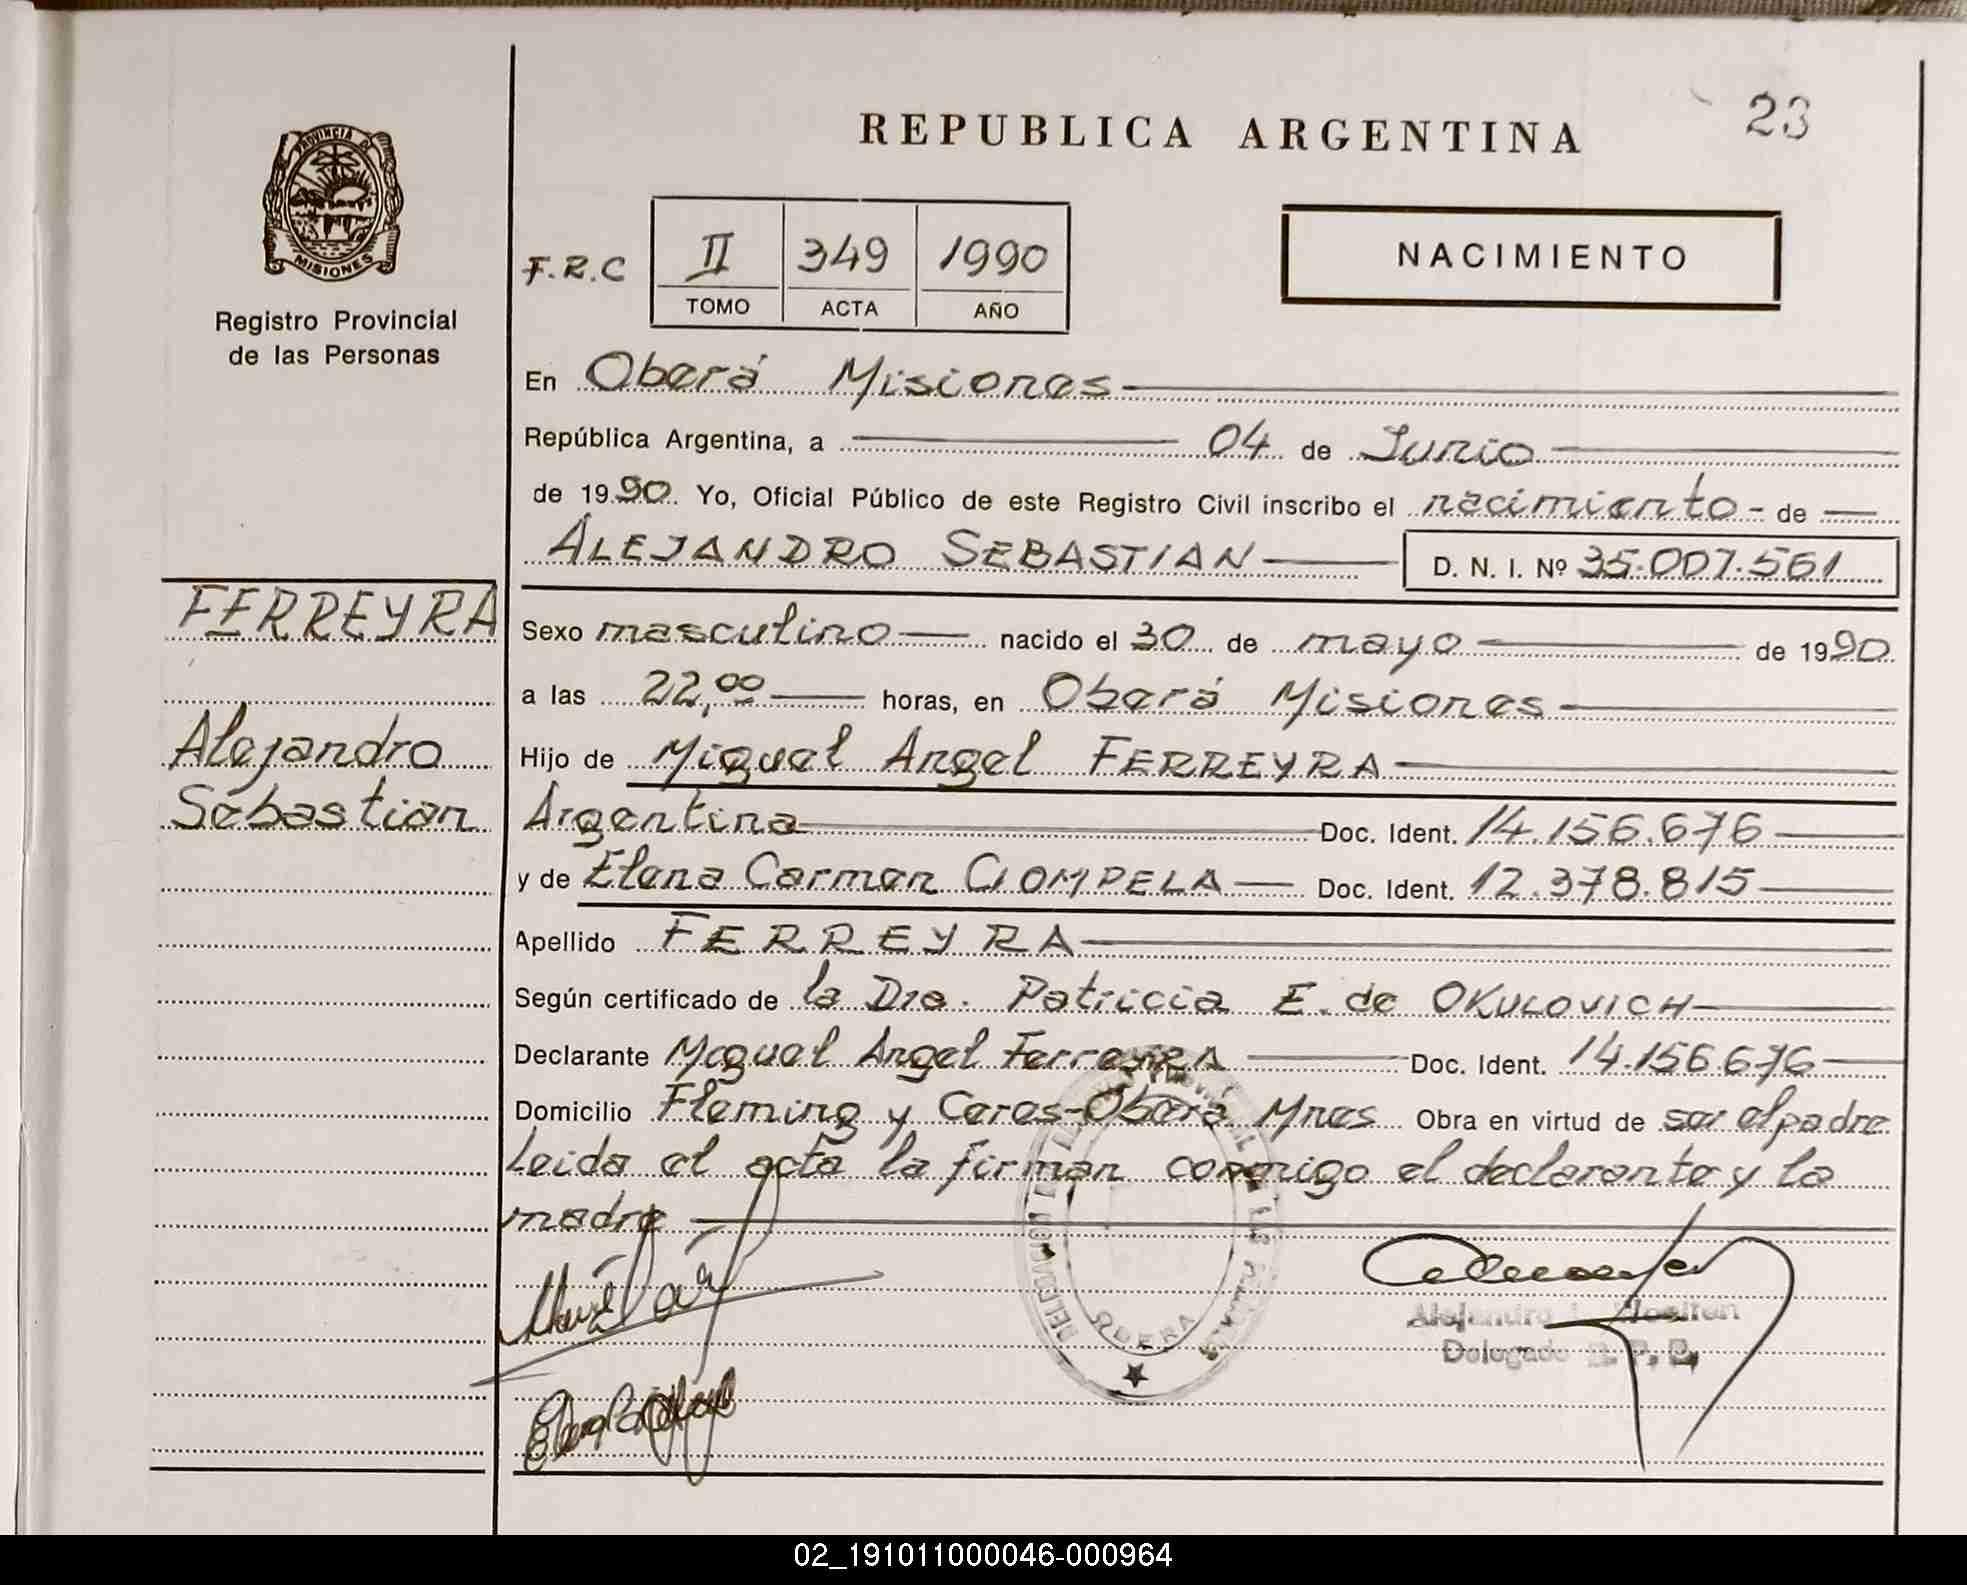 REPUBLICA ARGENTINA
23
PROVINCIA DE
MISIONES
Registro Provincial
de las Personas
F.R.C
II
349
1990
TOMO
ACTA
AÑO
NACIMIENTO
En Oberá Misiones
República Argentina, a 04 de Junio
de 1990 Yo, Oficial Público de este Registro Civil inscribo el nacimiento - de
ALEJANDRO SEBASTIAN D. N. I. Nº 35.007.561
FERREYRA
Alejandro
Sebastian
Sexo masculino nacido el 30 de mayo de 1990
a las 22,00 horas, en Oberá Misiones
Hijo de Miguel Angel FERREYRA
Argentina Doc. Ident. 14.156.676
y de Elena Carmen CIOMPELA Doc. Ident. 12.378.815
Apellido FERREYRA
Según certificado de la Dra. Patricia E. de OKULOVICH
Declarante Miguel Angel FerreyRA Doc. Ident. 14.156.676
Domicilio Fleming y Ceres-Oberá Mnes Obra en virtud de ser el padre
Leida el acta la firman conmigo el declarante y la
madre
OBERA
Alejandro
Delegado R. P. P.
02_191011000046-000964